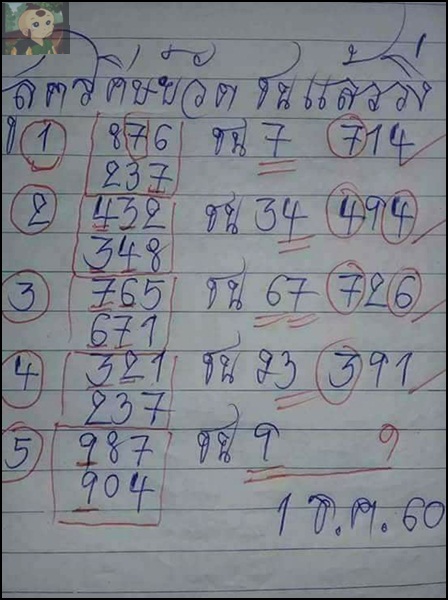 สูตรศิษย์วัด ชนแล้ววิ่ง
1 876 ชน 7 714
237
2 432 ชน 34 494
348
3 765 ชน 67 726
671
4 321 ชน 23 391
237
5 987 ชน 9 9
904
1 ธ.ค. 60